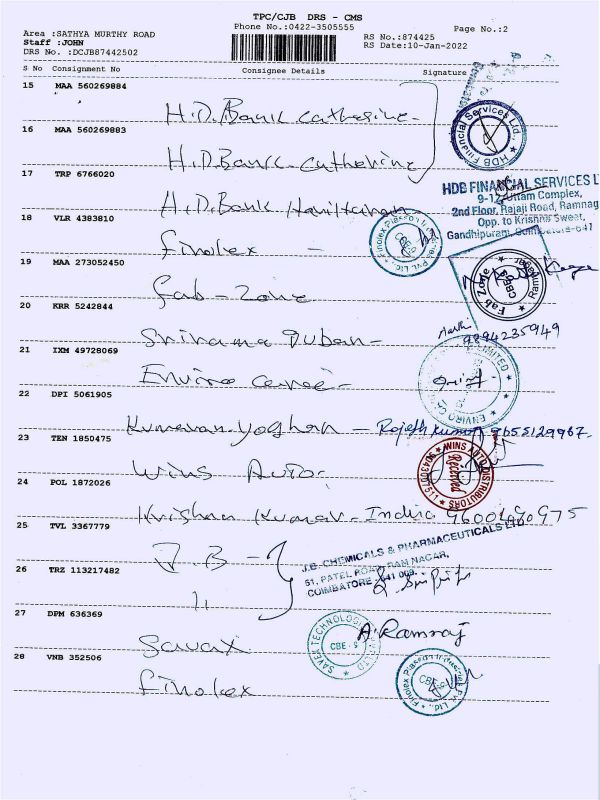 TPC/CJB DRS - CMS
Phone No.:0422-3505555
Page No.:2
Area :SATHYA MURTHY ROAD
Staff :JOHN
DRS No. :DCJB87442502
RS No.:874425
RS Date:10-Jan-2022
S No Consignment No Consignee Details Signature
15 MAA 560269884
H.D.Bank Catherine
16 MAA 560269883
H.D.Bank Catherine
HDB Financial Services Ltd.,
17 TRP 6766020
H.D.Bank
HDB FINANCIAL SERVICES
2nd Floor, Rajaji Road, Ramnag
Opp. to Krishna Sweet,
Gandhipuram, Coimbatore-641
18 VLR 4383810
Finolex
Finolex Plasson Industries Pvt. Ltd.,
CBE-9
19 MAA 273052450
Fab-Zone
Fab Zone
CBE-9
Ramnagar
20 KRR 5242844
9894235949
21 IXM 49728069
22 DPI 5061905
Rajesh Kumar 9655129967
23 TEN 1850475
Wins Auto
WINS AUTO DISTRIBUTORS
Received
9043007511
24 POL 1872026
Krishna Kumar - India
25 TVL 3367779
J.B
J.B. CHEMICALS & PHARMACEUTICALS LTD
51, PATEL ROAD, RAM NAGAR,
COIMBATORE - 641 009.
26 TRZ 113217482
27 DPM 636369
Savex
SAVEX TECHNOLOGIES
CBE-9
A. Ramraj
28 VNB 352506
Finolex
Finolex Plasson Industries Pvt. Ltd.,
CBE-9